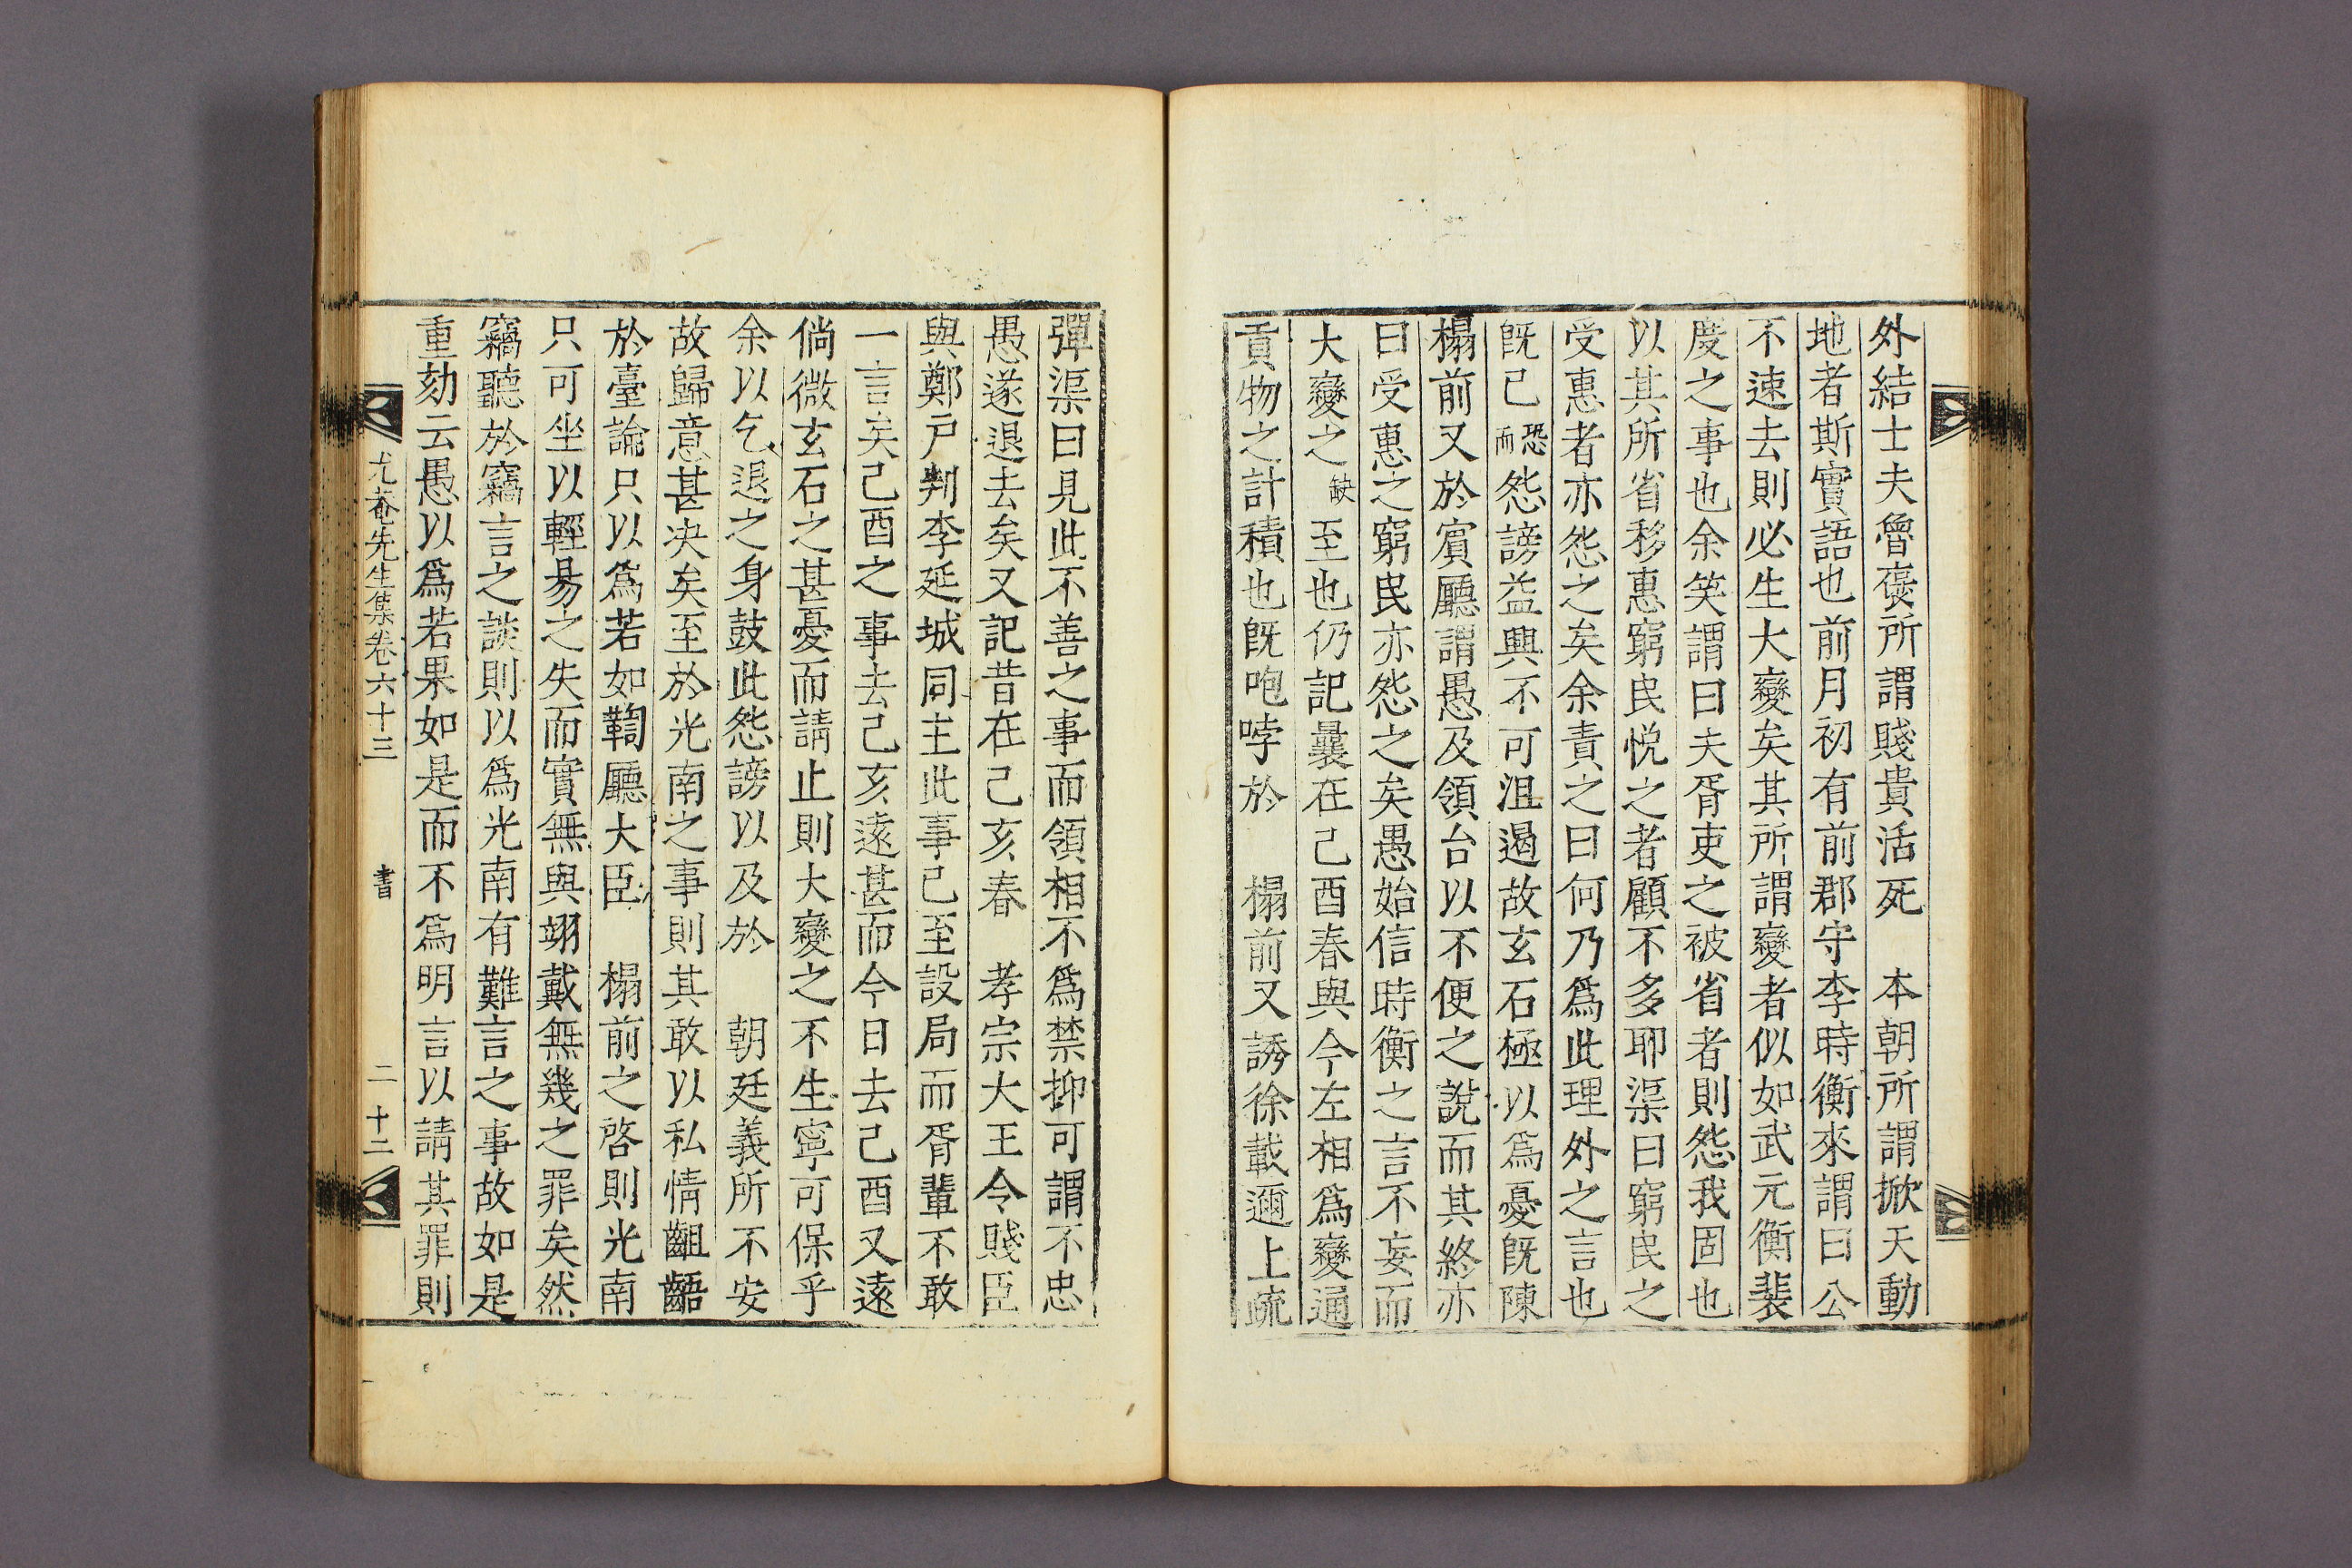 外結士夫魯褒所謂賤貴活死　本朝所謂掀天動
地者斯實語也前月初有前郡守李時衡來謂曰公
不速去則必生大變矣其所謂變者似如武元衡裴
度之事也余笑謂曰夫胥吏之被省者則怨我固也
以其所省移惠窮民悅之者顧不多耶渠曰窮民之
受惠者亦怨之矣余責之曰何乃爲此理外之言也
旣已恐而怨謗益興不可沮遏故玄石極以爲憂旣陳
榻前又於賓廳謂愚及領台以不便之說而其終亦
曰受惠之窮民亦怨之矣愚始信時衡之言不妄而
大變之缺至也仍記曩在己酉春與今左相爲變通
貢物之計積也旣咆哮於　榻前又誘徐載邇上疏
彈渠曰見此不善之事而領相不爲禁抑可謂不忠
愚遂退去矣又記昔在己亥春　孝宗大王令賤臣
與鄭戶判李延城同主此事已至設局而胥輩不敢
一言矣己酉之事去己亥遠甚而今日去己酉又遠
倘微玄石之甚憂而請止則大變之不生寧可保乎
余以乞退之身鼓此怨謗以及於　朝廷義所不安
故歸意甚決矣至於光南之事則其敢以私情齟齬
於臺論只以爲若如鞫廳大臣　榻前之啓則光南
只可坐以輕易之失而實無與翊戴無幾之罪矣然
竊聽於竊言之談則以爲光南有難言之事故如是
重劾云愚以爲若果如是而不爲明言以請其罪則
尤菴先生集卷六十三　書　二十二